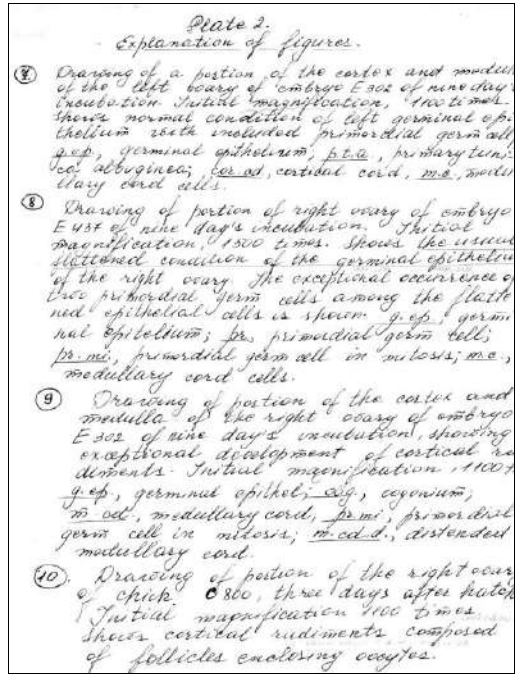 Plate 2.
Explanation of figures.
7 Drawing of a portion of the cortex and medul
of the left ovary of embryo E 302 of nine day'
incubation. Initial magnification, 1100 times.
Shows normal condition of left germinal epi
thelium with included primordial germ cell
g.ep., germinal epithelium, p.t.a., primary tuni-
ca albuginea; cor.cd, cortical cord, m.c., medu
llary cord cells.
8 Drawing of portion of right ovary of embryo
E 437 of nine day's incubation. Initial
magnification, 1500 times. Shows the usual
flattened condition of the germinal epitheliu
of the right ovary. The exceptional occurrence o
two primordial germ cells among the flatte
ned epithelial cells is shown. g.ep., germi
nal epitelium; pr., primordial germ cell;
pr.mi., primordial germ cell in mitosis; m.c.,
medullary cord cells.
9 Drawing of portion of the cortex and
medulla of the right ovary of embryo
E 302 of nine day's incubation, showing
exceptional development of cortical ru
diments. Initial magnification, 1100
g.ep., germinal epithel; oog., oogonium;
m.cd., medullary cord, pr.mi, primordial
germ cell in mitosis; m.cd.d., distended
medullary cord.
10. Drawing of portion of the right ovar
of chick C 860, three days after hatch
Initial magnification 1100 times
Shows cortical rudiments composed
of follicles enclosing oocytes.